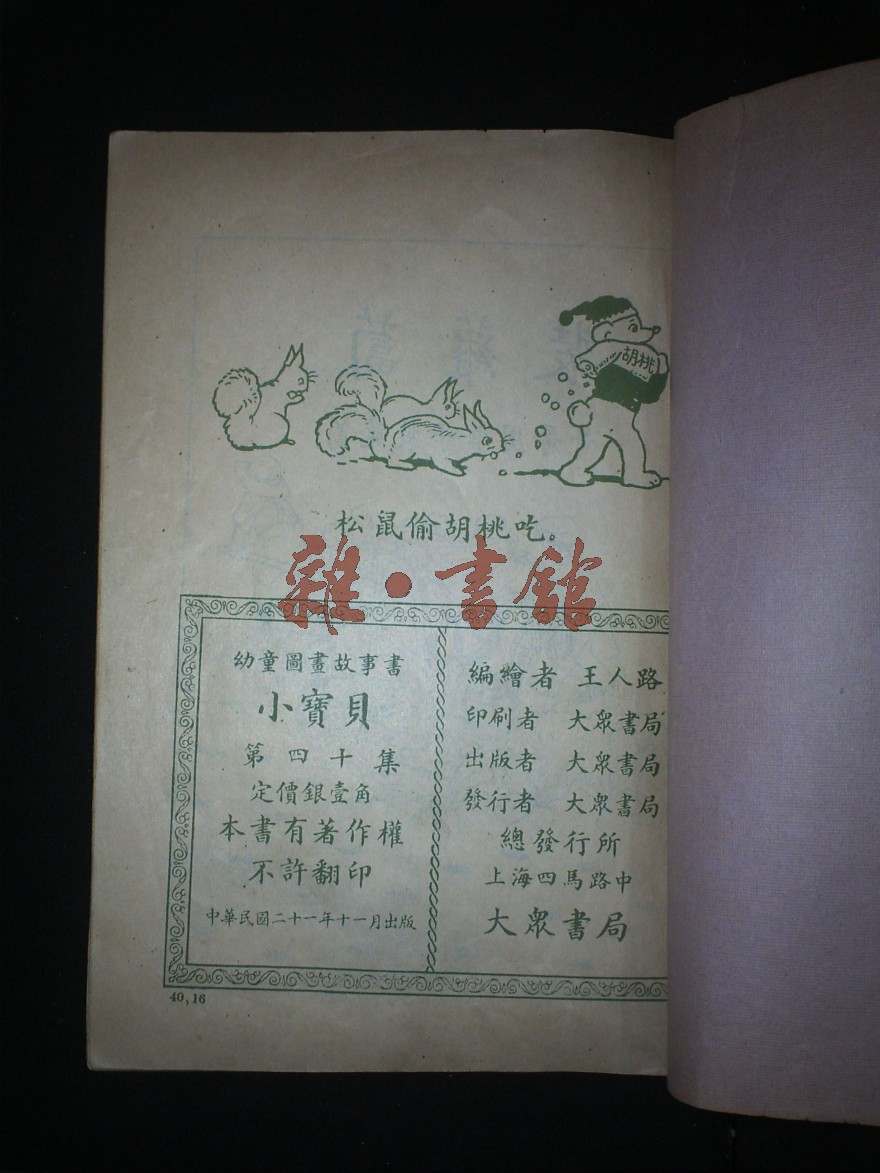 胡桃
松鼠偷胡桃吃。
雜·書館
幼童圖畫故事書
小寶貝
第四十集
定價銀壹角
本書有著作權
不許翻印
中華民國二十一年十一月出版
編繪者 王人路
印刷者 大眾書局
出版者 大眾書局
發行者 大眾書局
總發行所
上海四馬路中
大眾書局
40,16